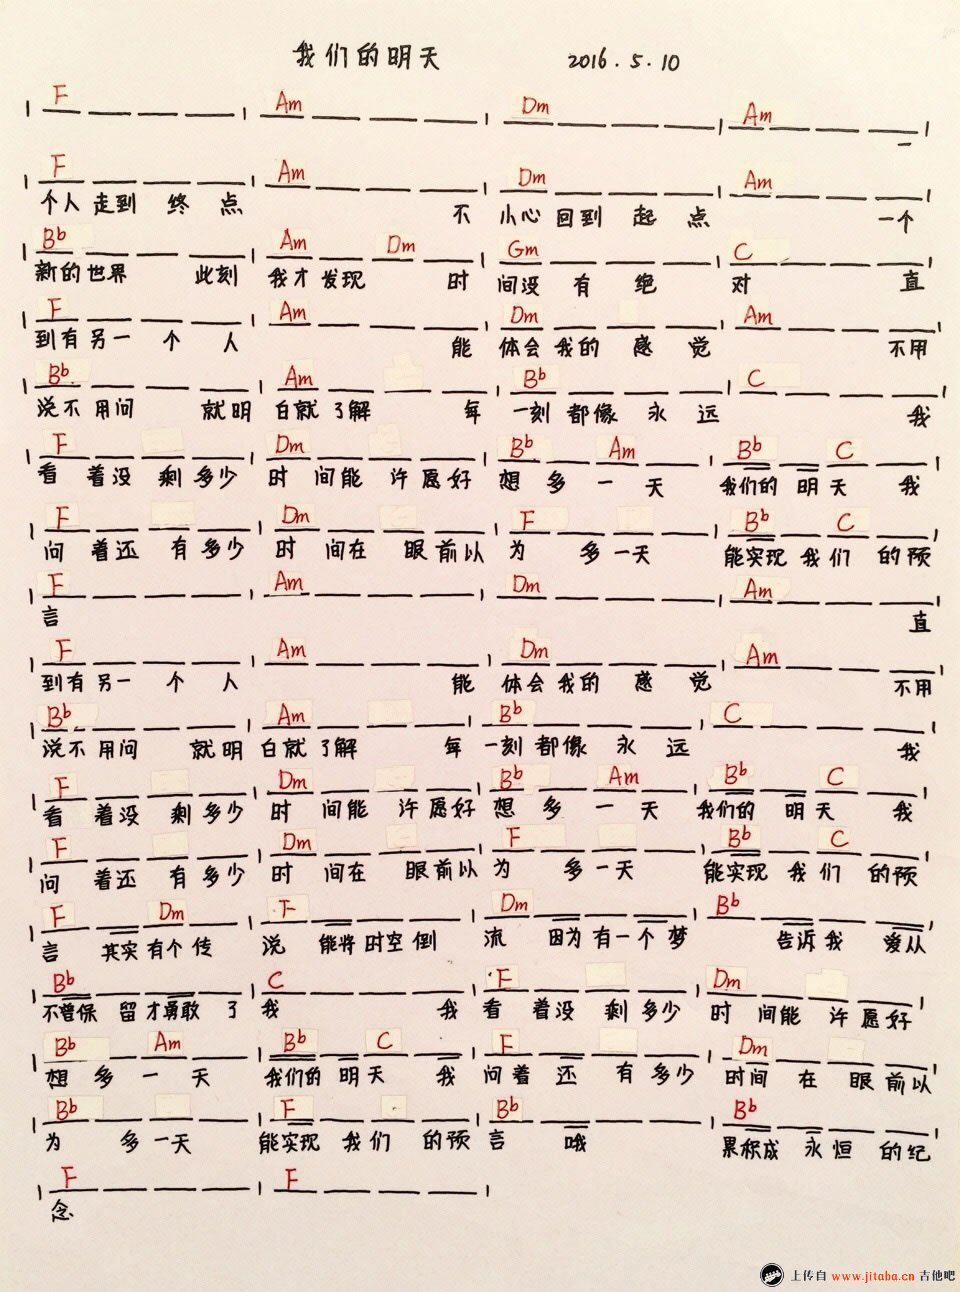 我们的明天 2016.5.10
F Am Dm Am
一
F Am Dm Am
个人走到终点 不小心回到起点 一个
Bb Am Dm Gm C
新的世界 此刻我才发现 时间没有绝对 直
F Am Dm Am
到有另一个人 能体会我的感觉 不用
Bb Am Bb C
说不用问 就明白就了解 每一刻都像永远 我
F Dm Bb Am Bb C
看着没剩多少时间能许愿好想多一天 我们的明天 我
F Dm F Bb C
问着还有多少时间在眼前以为多一天 能实现我们的预
F Am Dm Am
言 直
F Am Dm Am
到有另一个人 能体会我的感觉 不用
Bb Am Bb C
说不用问 就明白就了解 每一刻都像永远 我
F Dm Bb Am Bb C
看着没剩多少时间能许愿好想多一天 我们的明天 我
F Dm F Bb C
问着还有多少时间在眼前以为多一天 能实现我们的预
F Dm F Dm Bb
言 其实有个传说 能将时空倒流 因为有一个梦 告诉我 爱从
Bb C F Dm
不曾保留才勇敢了我 我看着没剩多少时间能许愿好
Bb Am Bb C F Dm
想多一天 我们的明天 我问着还有多少时间在眼前以
Bb F Bb Bb
为多一天 能实现我们的预言 哦 累积成永恒的纪
F F
念
上传自 www.jitaba.cn 吉他吧